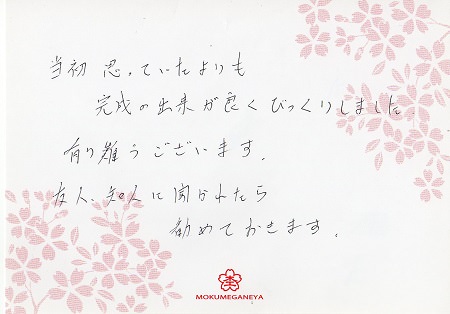 当初思っていたよりも
完成の出来が良くびっくりしました
有り難うございます。
友人、知人に聞かれたら
勧めておきます。
MOKUMEGANEYA